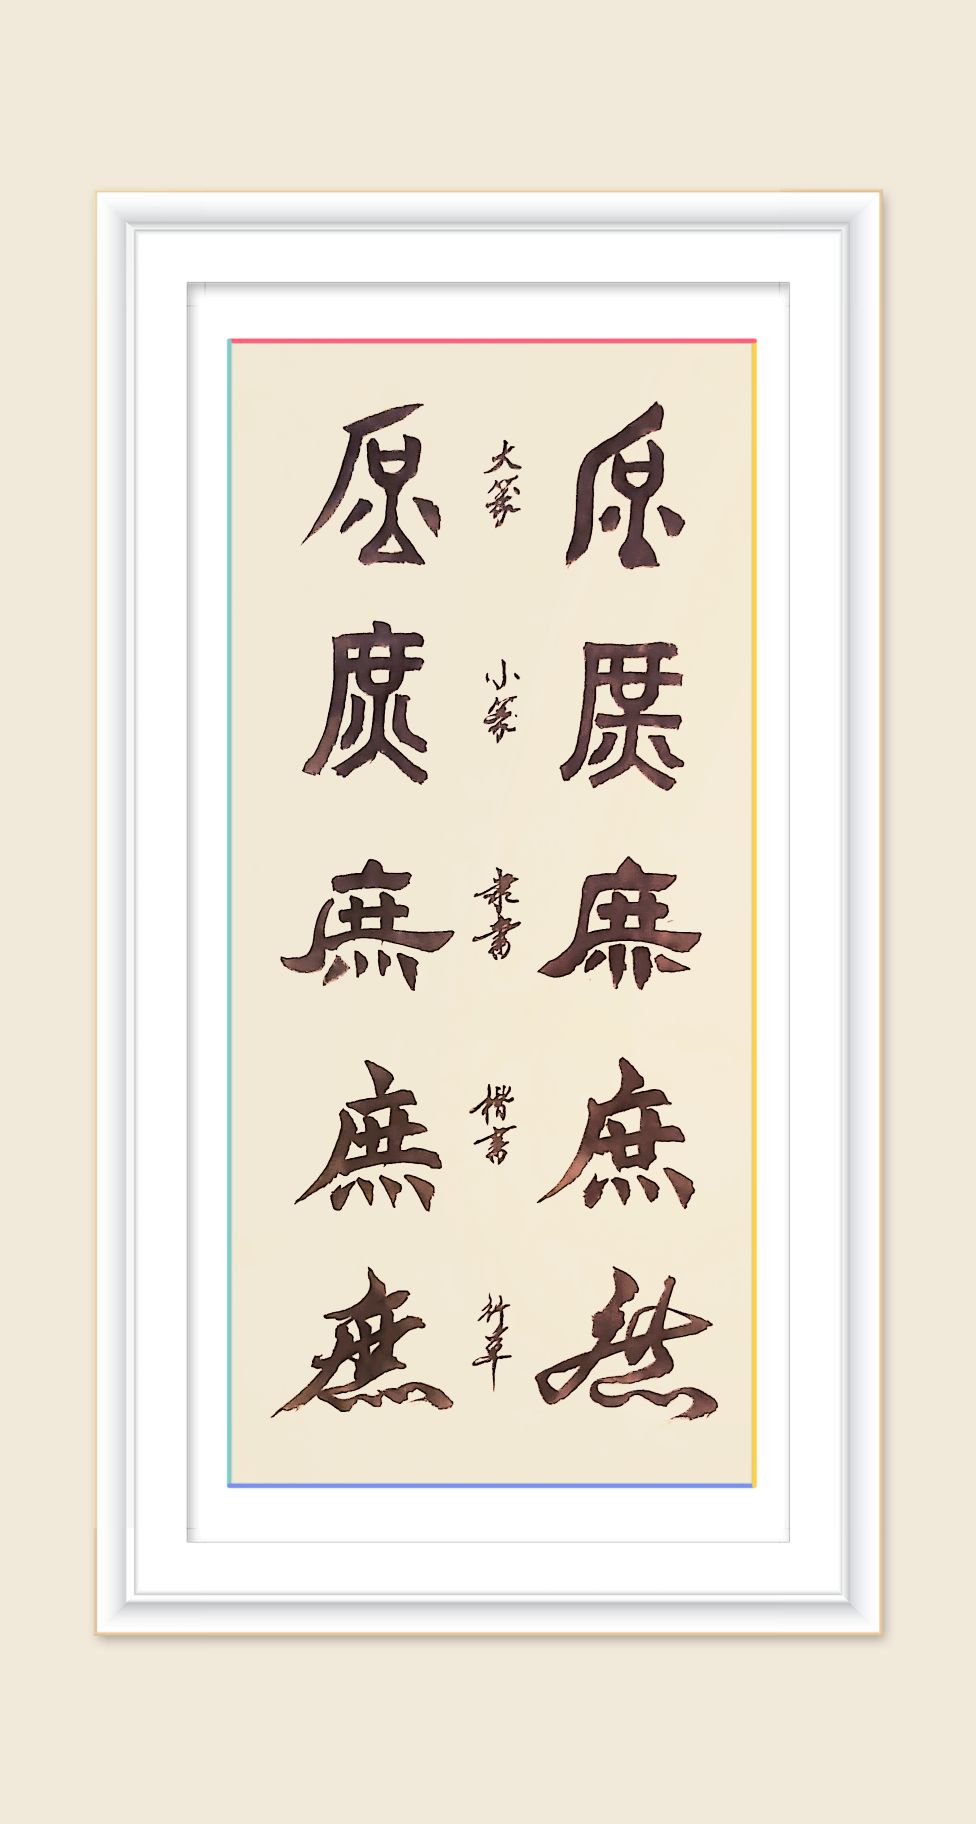 庶 大篆 庶
庶 小篆 庶
庶 隶書 庶
庶 楷書 庶
庶 行草 庶